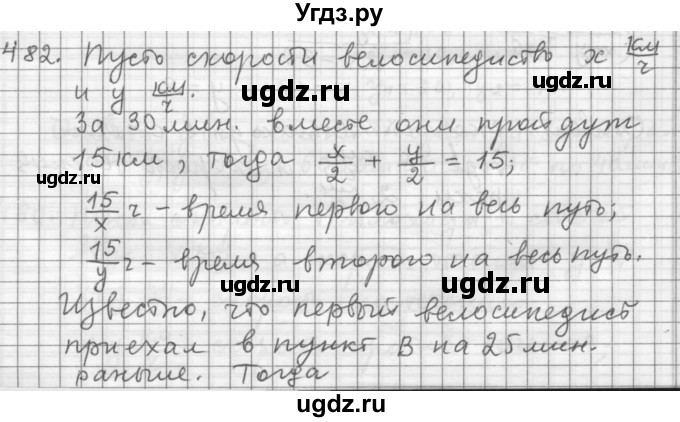 Угдз.ру
482. Пусть скорости велосипедистов x км/ч
и y км/ч.
ugdz.ru
ugdz.ru
За 30 мин. вместе они пройдут
15 км, тогда x/2 + y/2 = 15;
ugdz.ru
ugdz.ru
15/x ч - время первого на весь путь;
15/y ч - время второго на весь путь.
ugdz.ru
ugdz.ru
Известно, что первый велосипедист
приехал в пункт B на 25 мин.
раньше. Тогда
ugdz.ru
ugdz.ru